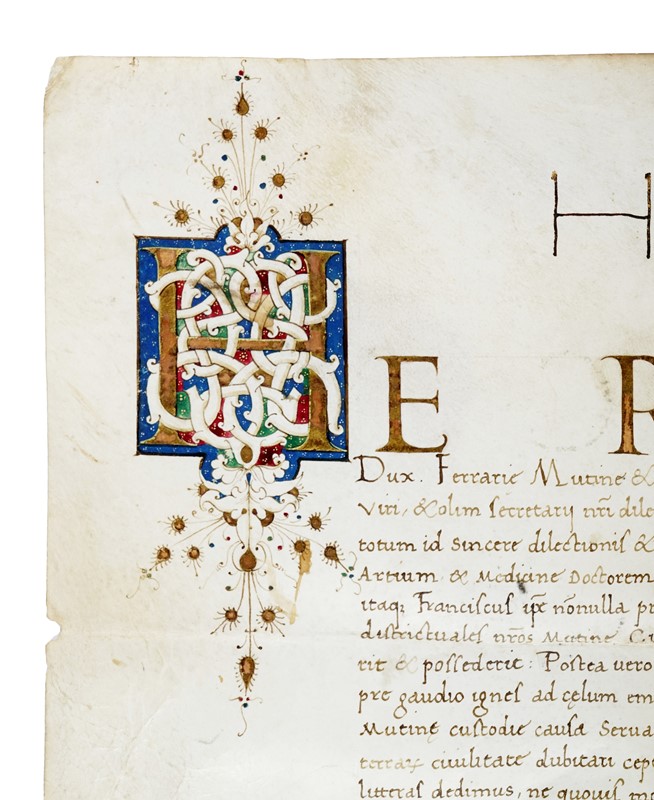 H
H E R
Dux. Ferrarie Mutine &
Viri, & olim secretarij nr̄i dile
totum id sincere dilectionis &
Artium & Medicine Doctorem
itaq; Franciscus ip̄e nōnulla pr
districtuales nr̄os Mutine. Ci
rit & possederit: Postea vero
pre gaudio ignes ad cęlum em
Mutinę custodie causa Serua
terraꝝ ciuilitate dubitari cep
litteras dedimus, ne quouis mo